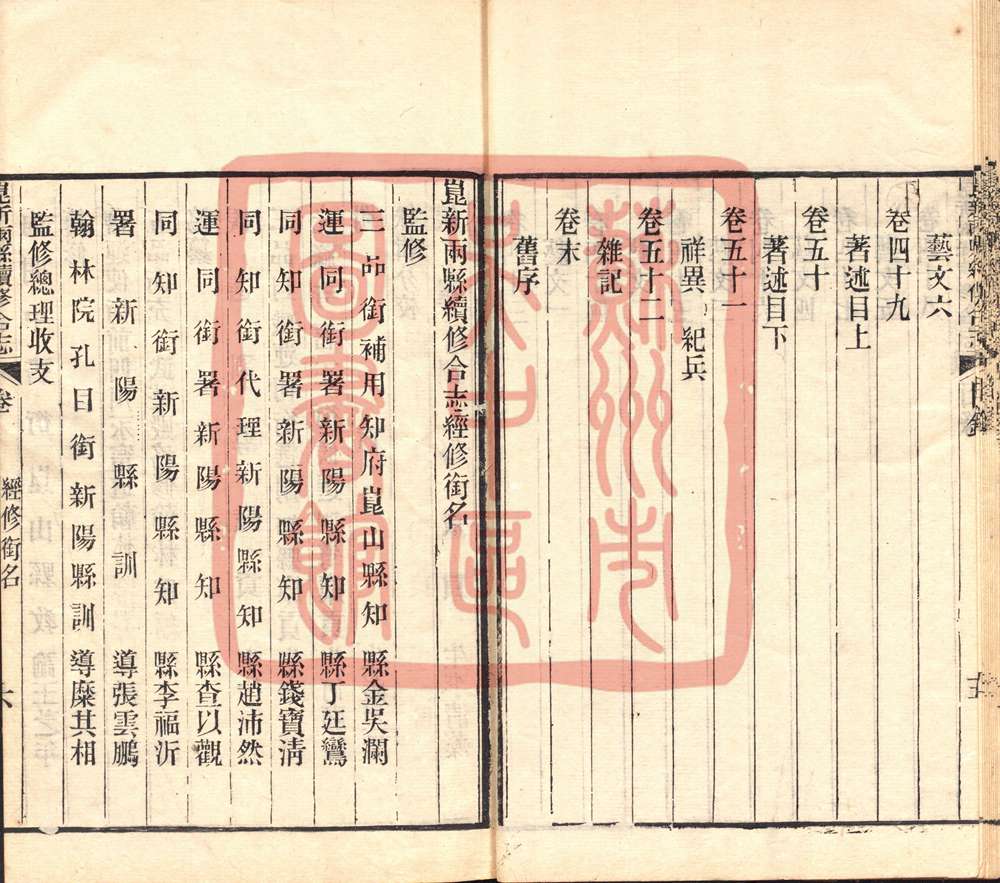 藝文六
卷四十九
著述目上
卷五十
著述目下
卷五十一
祥異 紀兵
卷五十二
雜記
卷末
舊序
崑新兩縣續修合志經修銜名
監修
三品銜補用知府崑山縣知縣金吳瀾
運同銜署新陽縣知縣丁廷鸞
同知銜署新陽縣知縣錢寶清
同知銜代理新陽縣知縣趙沛然
運同銜署新陽縣知縣查以觀
同知銜新陽縣知縣李福沂
署新陽縣訓導張雲鵬
翰林院孔目銜新陽縣訓導糜其相
監修總理收支
崑新兩縣續修合志 卷 經修銜名 六
蘇州市
吳中區
圖書館